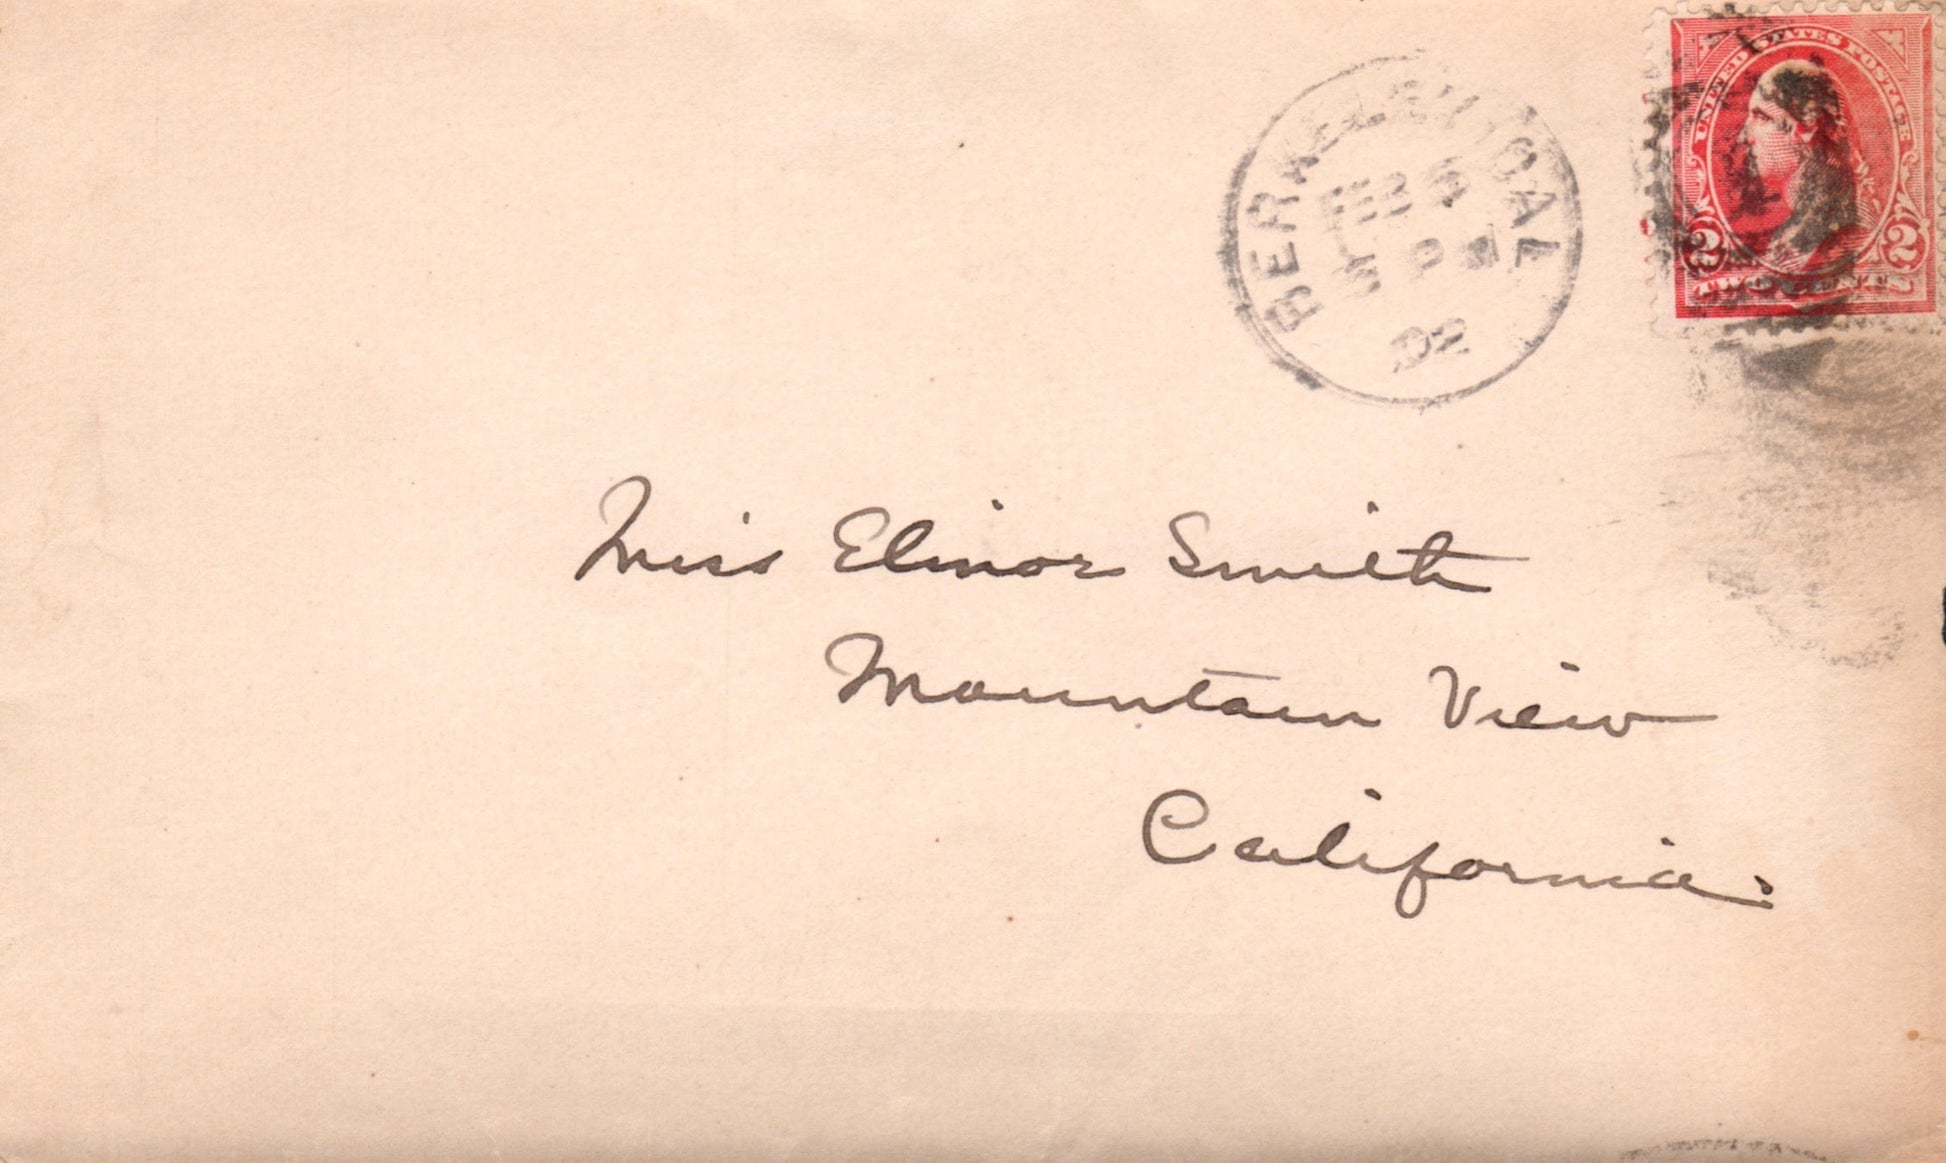 UNITED STATES POSTAGE
2 2
TWO CENTS
BERKELEY, CAL
FEB
P M
02
Miss Elinor Smith
Mountain View
California.